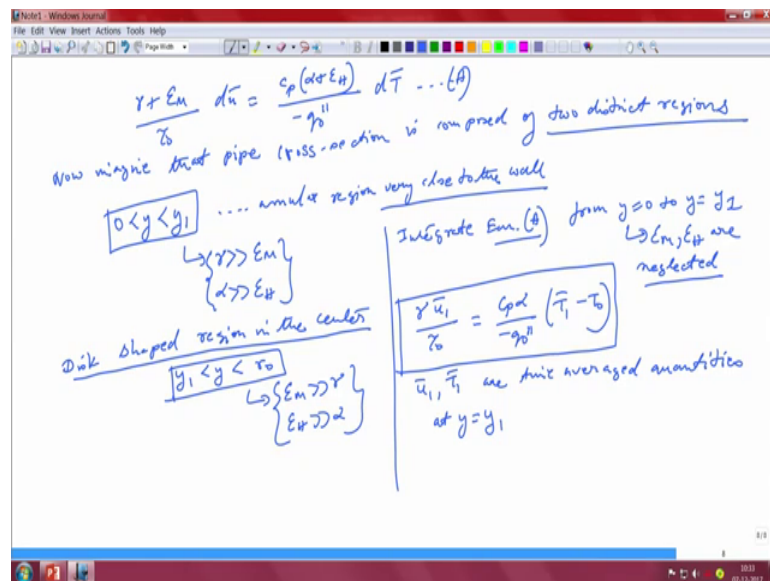 Note1 - Windows Journal
File Edit View Insert Actions Tools Help
Page Width
(γ + ε_M)/τ_0 dū = c_p(α+ε_H)/(-q_0'') dT̄ ...(A)
Now imagine that pipe cross-section is composed of two distinct regions
0 < y < y_1 .... annular region very close to the wall
γ >> ε_M
α >> ε_H
Disk shaped region in the center
y_1 < y < r_0
ε_M >> γ
ε_H >> α
Integrate Eqn. (A) from y=0 to y=y_1
ε_M, ε_H are
neglected
γ ū_1/τ_0 = c_p α/(-q_0'') (T̄_1 - T_0)
ū_1, T̄_1 are time averaged quantities
at y = y_1
8/8
8
10:33
02-11-2017